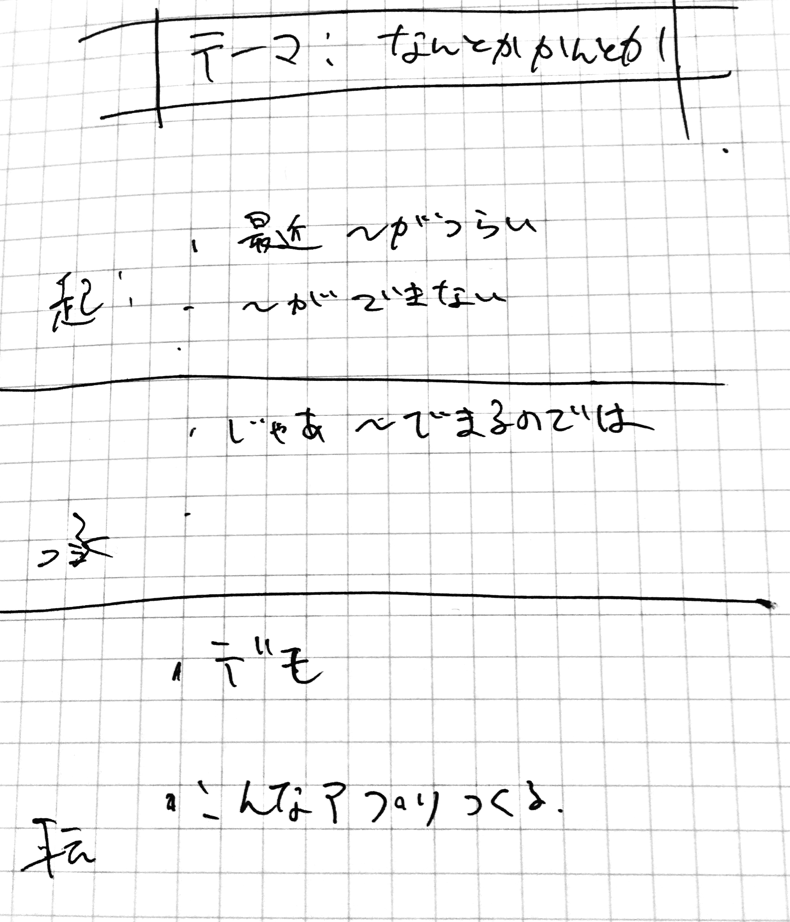 テーマ: なんとかかんとか
・最近 〜がつらい
起: ・〜ができない
・
・じゃあ 〜できるのでは
・
承
・デモ
・こんなアプリつくる.
転